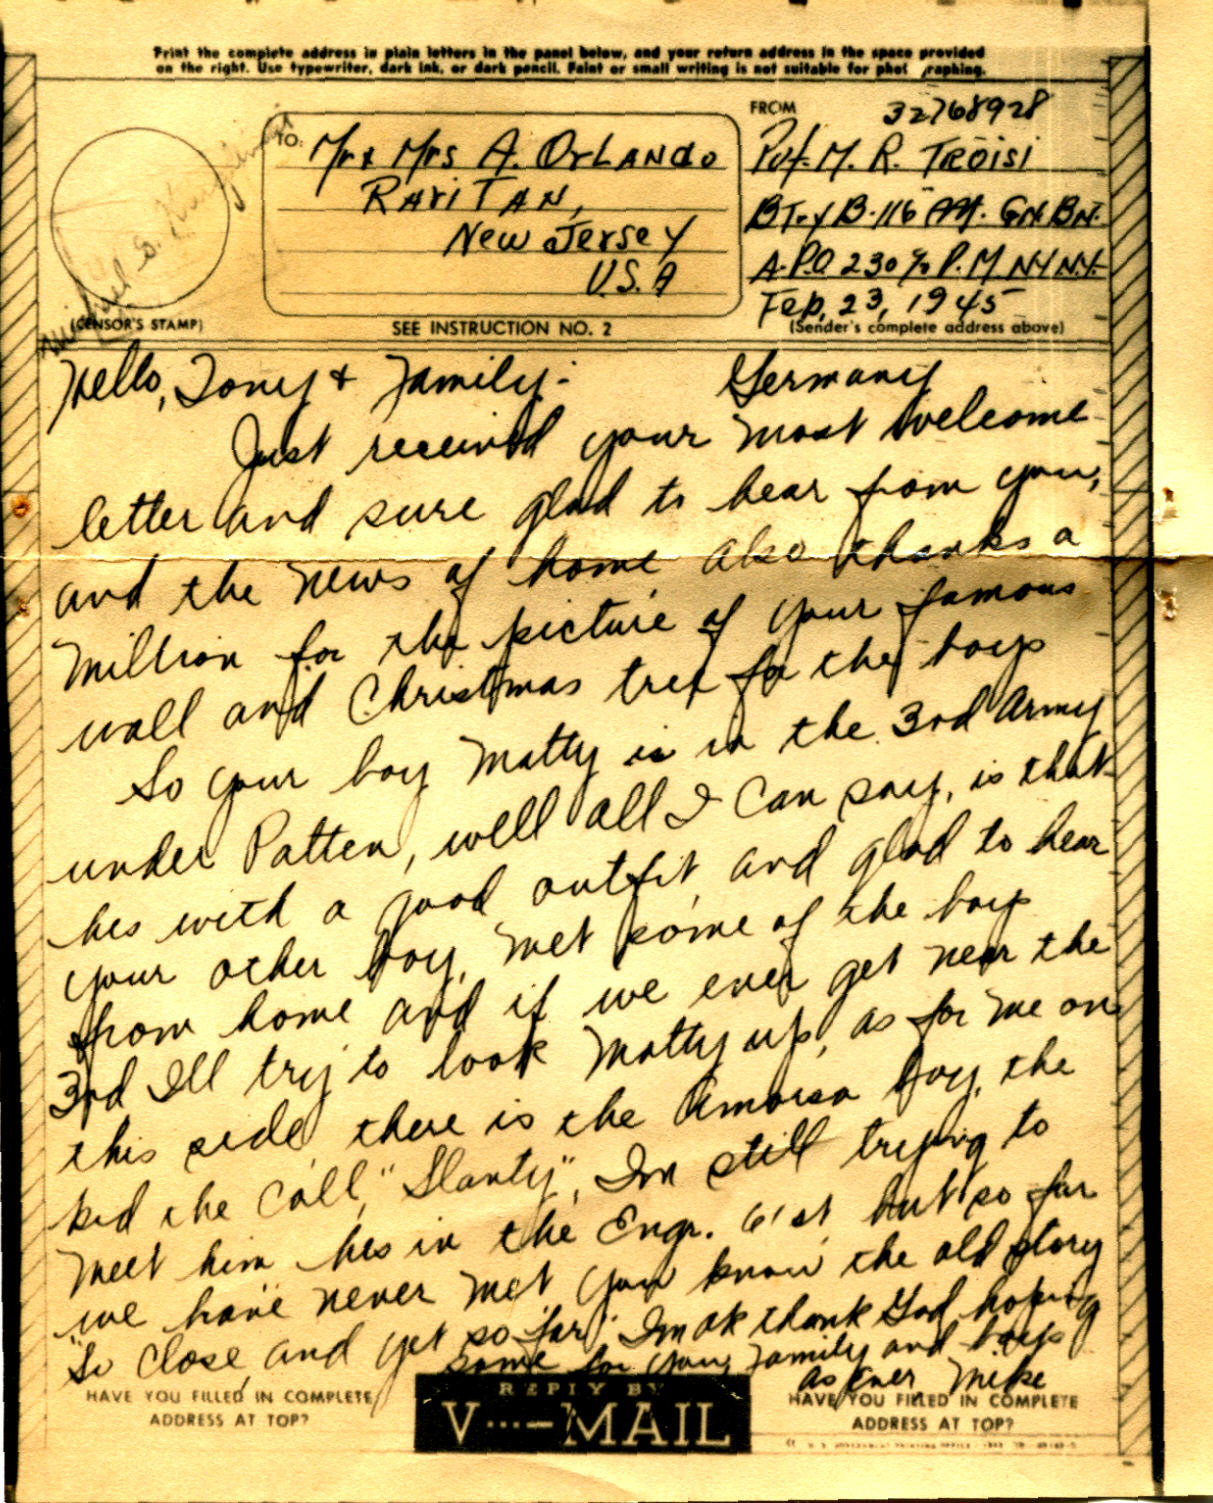 Print the complete address in plain letters in the panel below, and your return address in the space provided
on the right. Use typewriter, dark ink, or dark pencil. Faint or small writing is not suitable for phot raphing.
FROM 32768928
TO:
Mr & Mrs A. Orlando
Raritan,
New Jersey
U.S.A
Pvt. M. R. Troisi
Btry B-116 AA. Gn. Bn.
A.P.O 230 % P.M NY N.Y.
Feb, 23, 1945
(CENSOR'S STAMP)
SEE INSTRUCTION NO. 2
(Sender's complete address above)
Hello, Tony & Family:- Germany
Just received your most welcome
letter and sure glad to hear from you,
and the news of home also thanks a
million for the picture of your famous
wall and Christmas tree for the boys
So your boy Matty is in the 3rd Army
under Patten, well all I can say, is that
hes with a good outfit, and glad to hear
your other boy, met some of the boys
from home and if we ever get near the
3rd Ill try to look Matty up, as for me on
this side, there is the boy, the
kid the call, "Slanty", Im still trying to
meet him hes in the Engr. 61st, but so far
we have never met you know the old story
"So close, and yet so far". Im ok thank God hoping
same for your family and boys
as ever Mike
HAVE YOU FILLED IN COMPLETE
ADDRESS AT TOP?
REPLY BY
V···—MAIL
HAVE YOU FILLED IN COMPLETE
ADDRESS AT TOP?